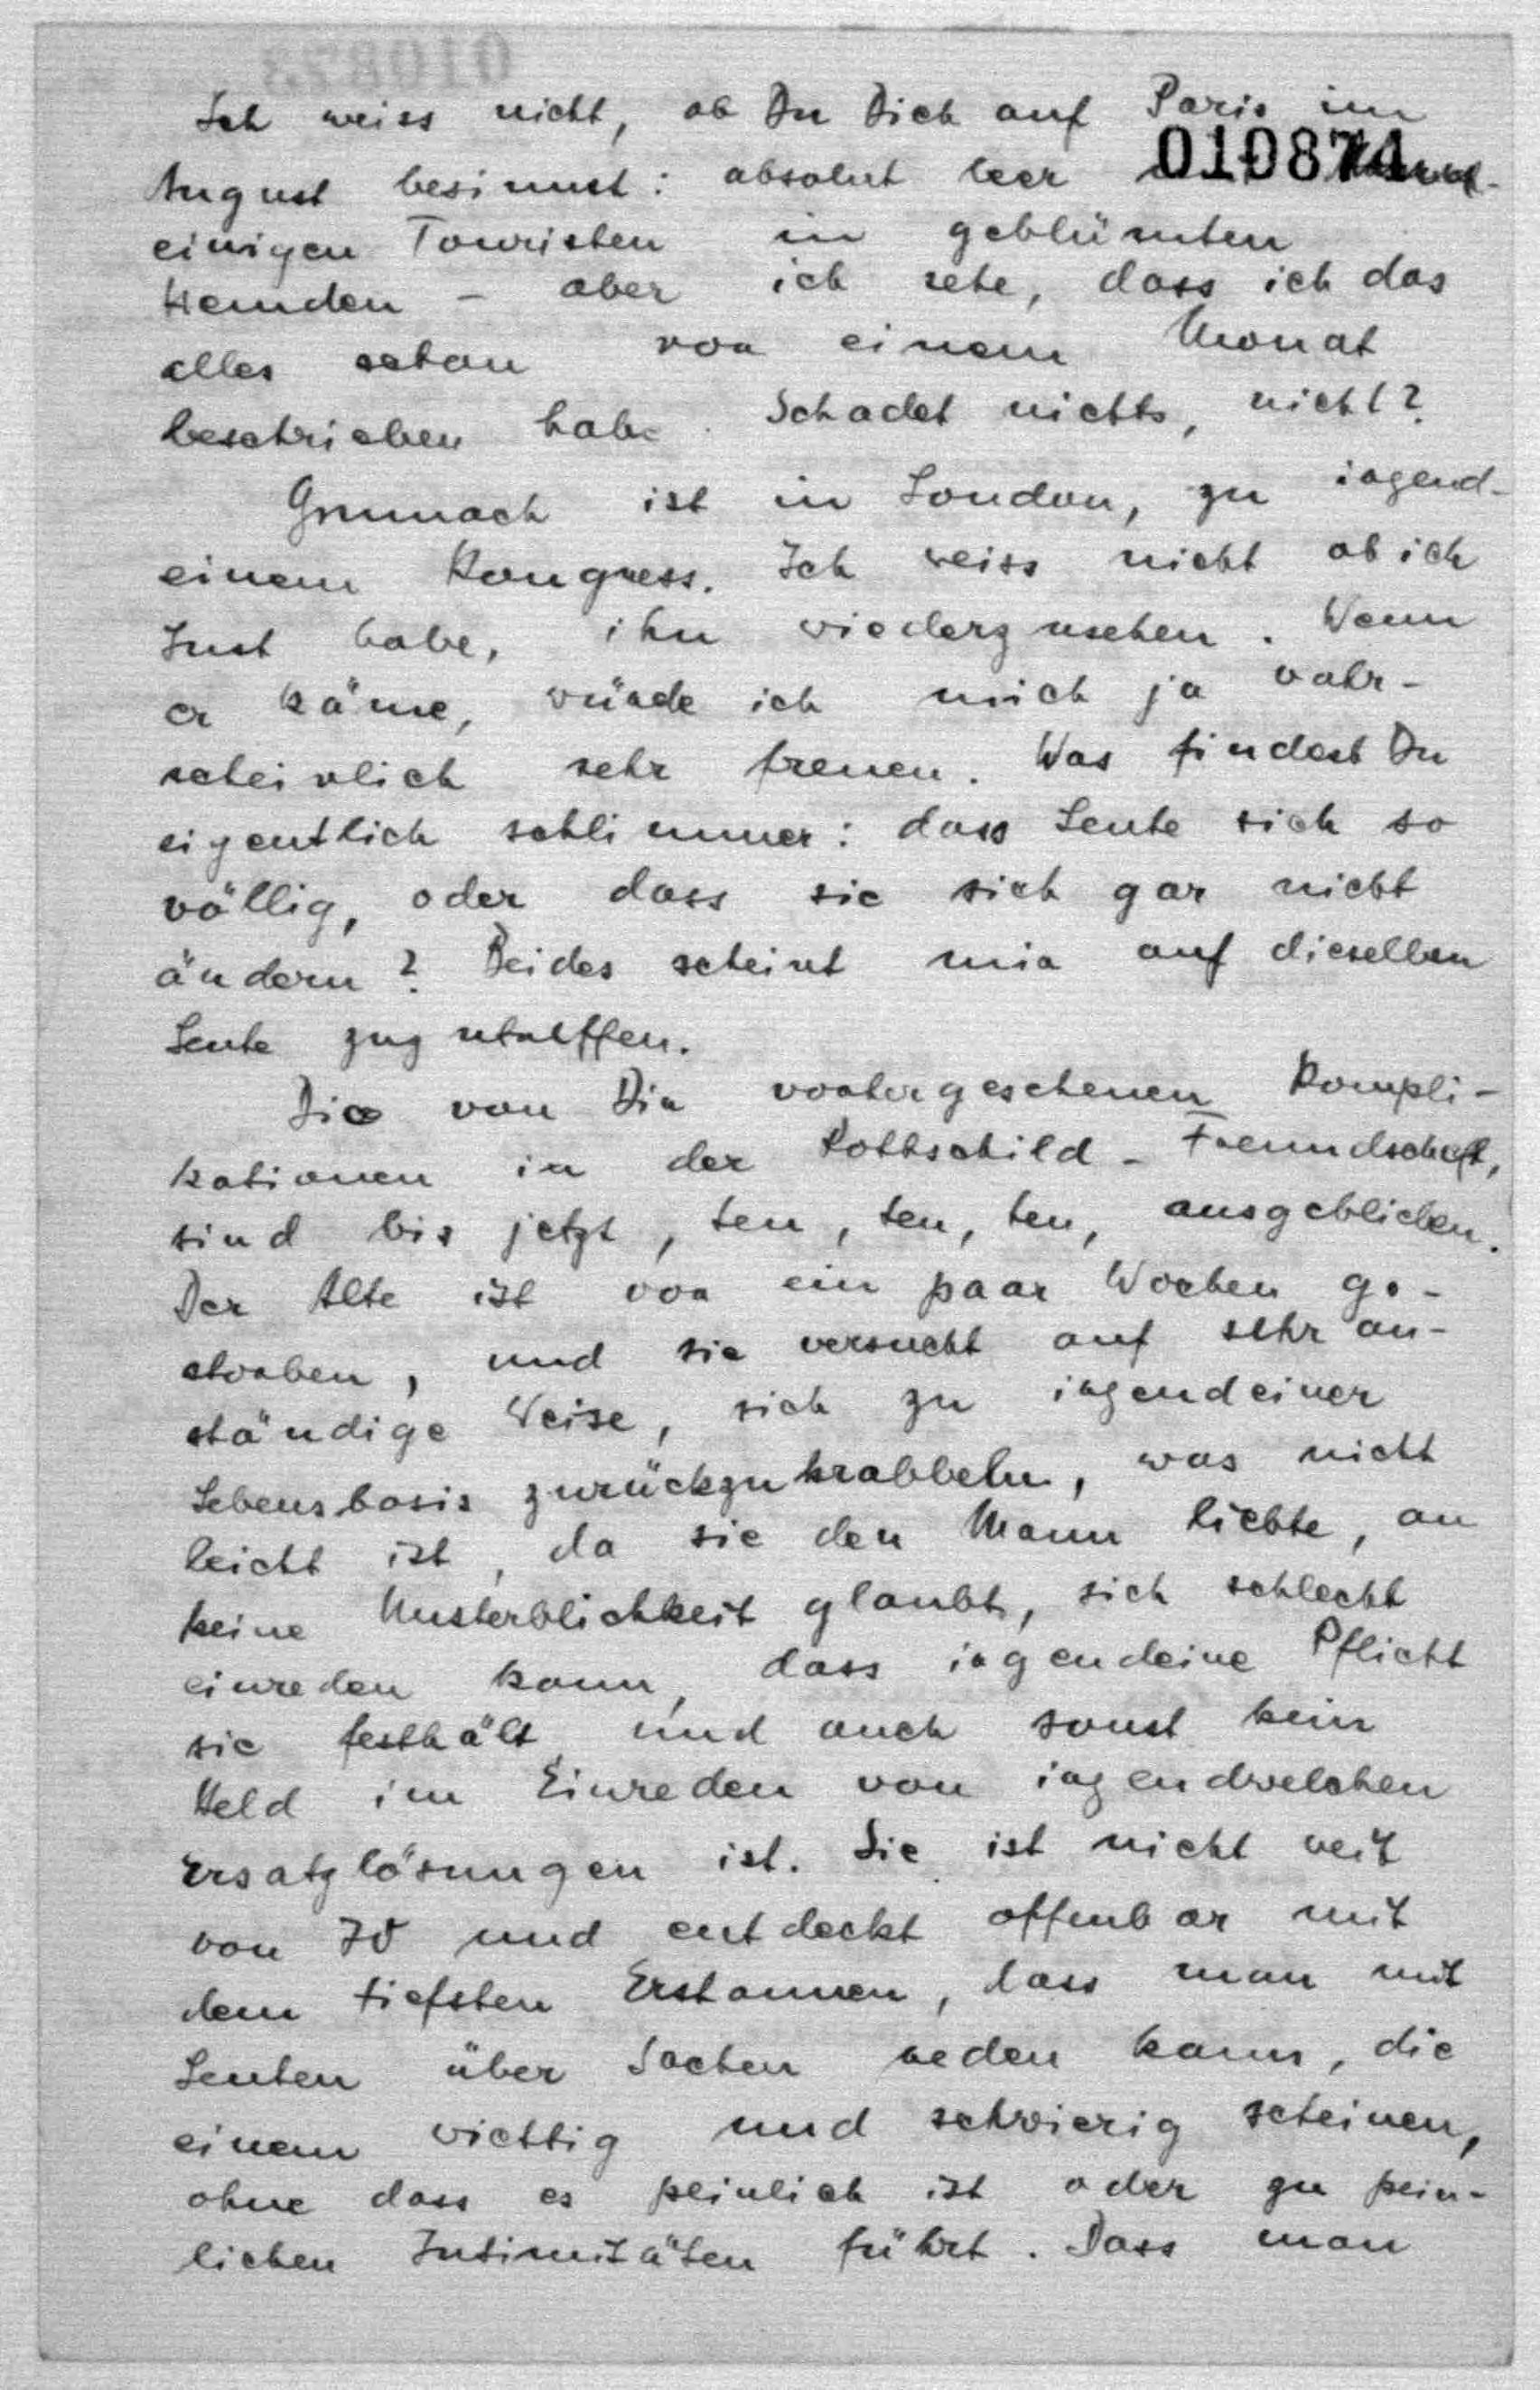 Ich weiss nicht, ob Du Dich auf Paris im
010874
August besinnst: absolut leer
einigen Touristen in geblümten
Hemden – aber ich sehe, dass ich das
alles schon vor einem Monat
beschrieben habe. Schadet nichts, nicht?
Grumach ist in London, zu irgend-
einem Kongress. Ich weiss nicht ob ich
Lust habe, ihn wiederzusehen. Wenn
er käme, würde ich mich ja wahr-
scheinlich sehr freuen. Was findest Du
eigentlich schlimmer: dass Leute sich so
völlig, oder dass sie sich gar nicht
ändern? Beides scheint mir auf dieselben
Leute zuzutreffen.
Die von Dir vorhergesehenen Kompli-
kationen in der Rothschild-Freundschaft,
sind bis jetzt, teu, teu, teu, ausgeblieben.
Der Alte ist vor ein paar Wochen ge-
storben, und sie versucht auf sehr an-
ständige Weise, sich zu irgendeiner
Lebensbasis zurückzukrabbeln, was nicht
leicht ist, da sie den Mann liebte, an
keine Unsterblichkeit glaubt, sich schlecht
einreden kann, dass irgendeine Pflicht
sie festhält und auch sonst kein
Held im Einreden von irgendwelchen
Ersatzlösungen ist. Sie ist nicht weit
von 70 und entdeckt offenbar mit
dem tiefsten Erstaunen, dass man mit
Leuten über Sachen reden kann, die
einem wichtig und schwierig scheinen,
ohne dass es peinlich ist oder zu pein-
lichen Intimitäten führt. Dass man